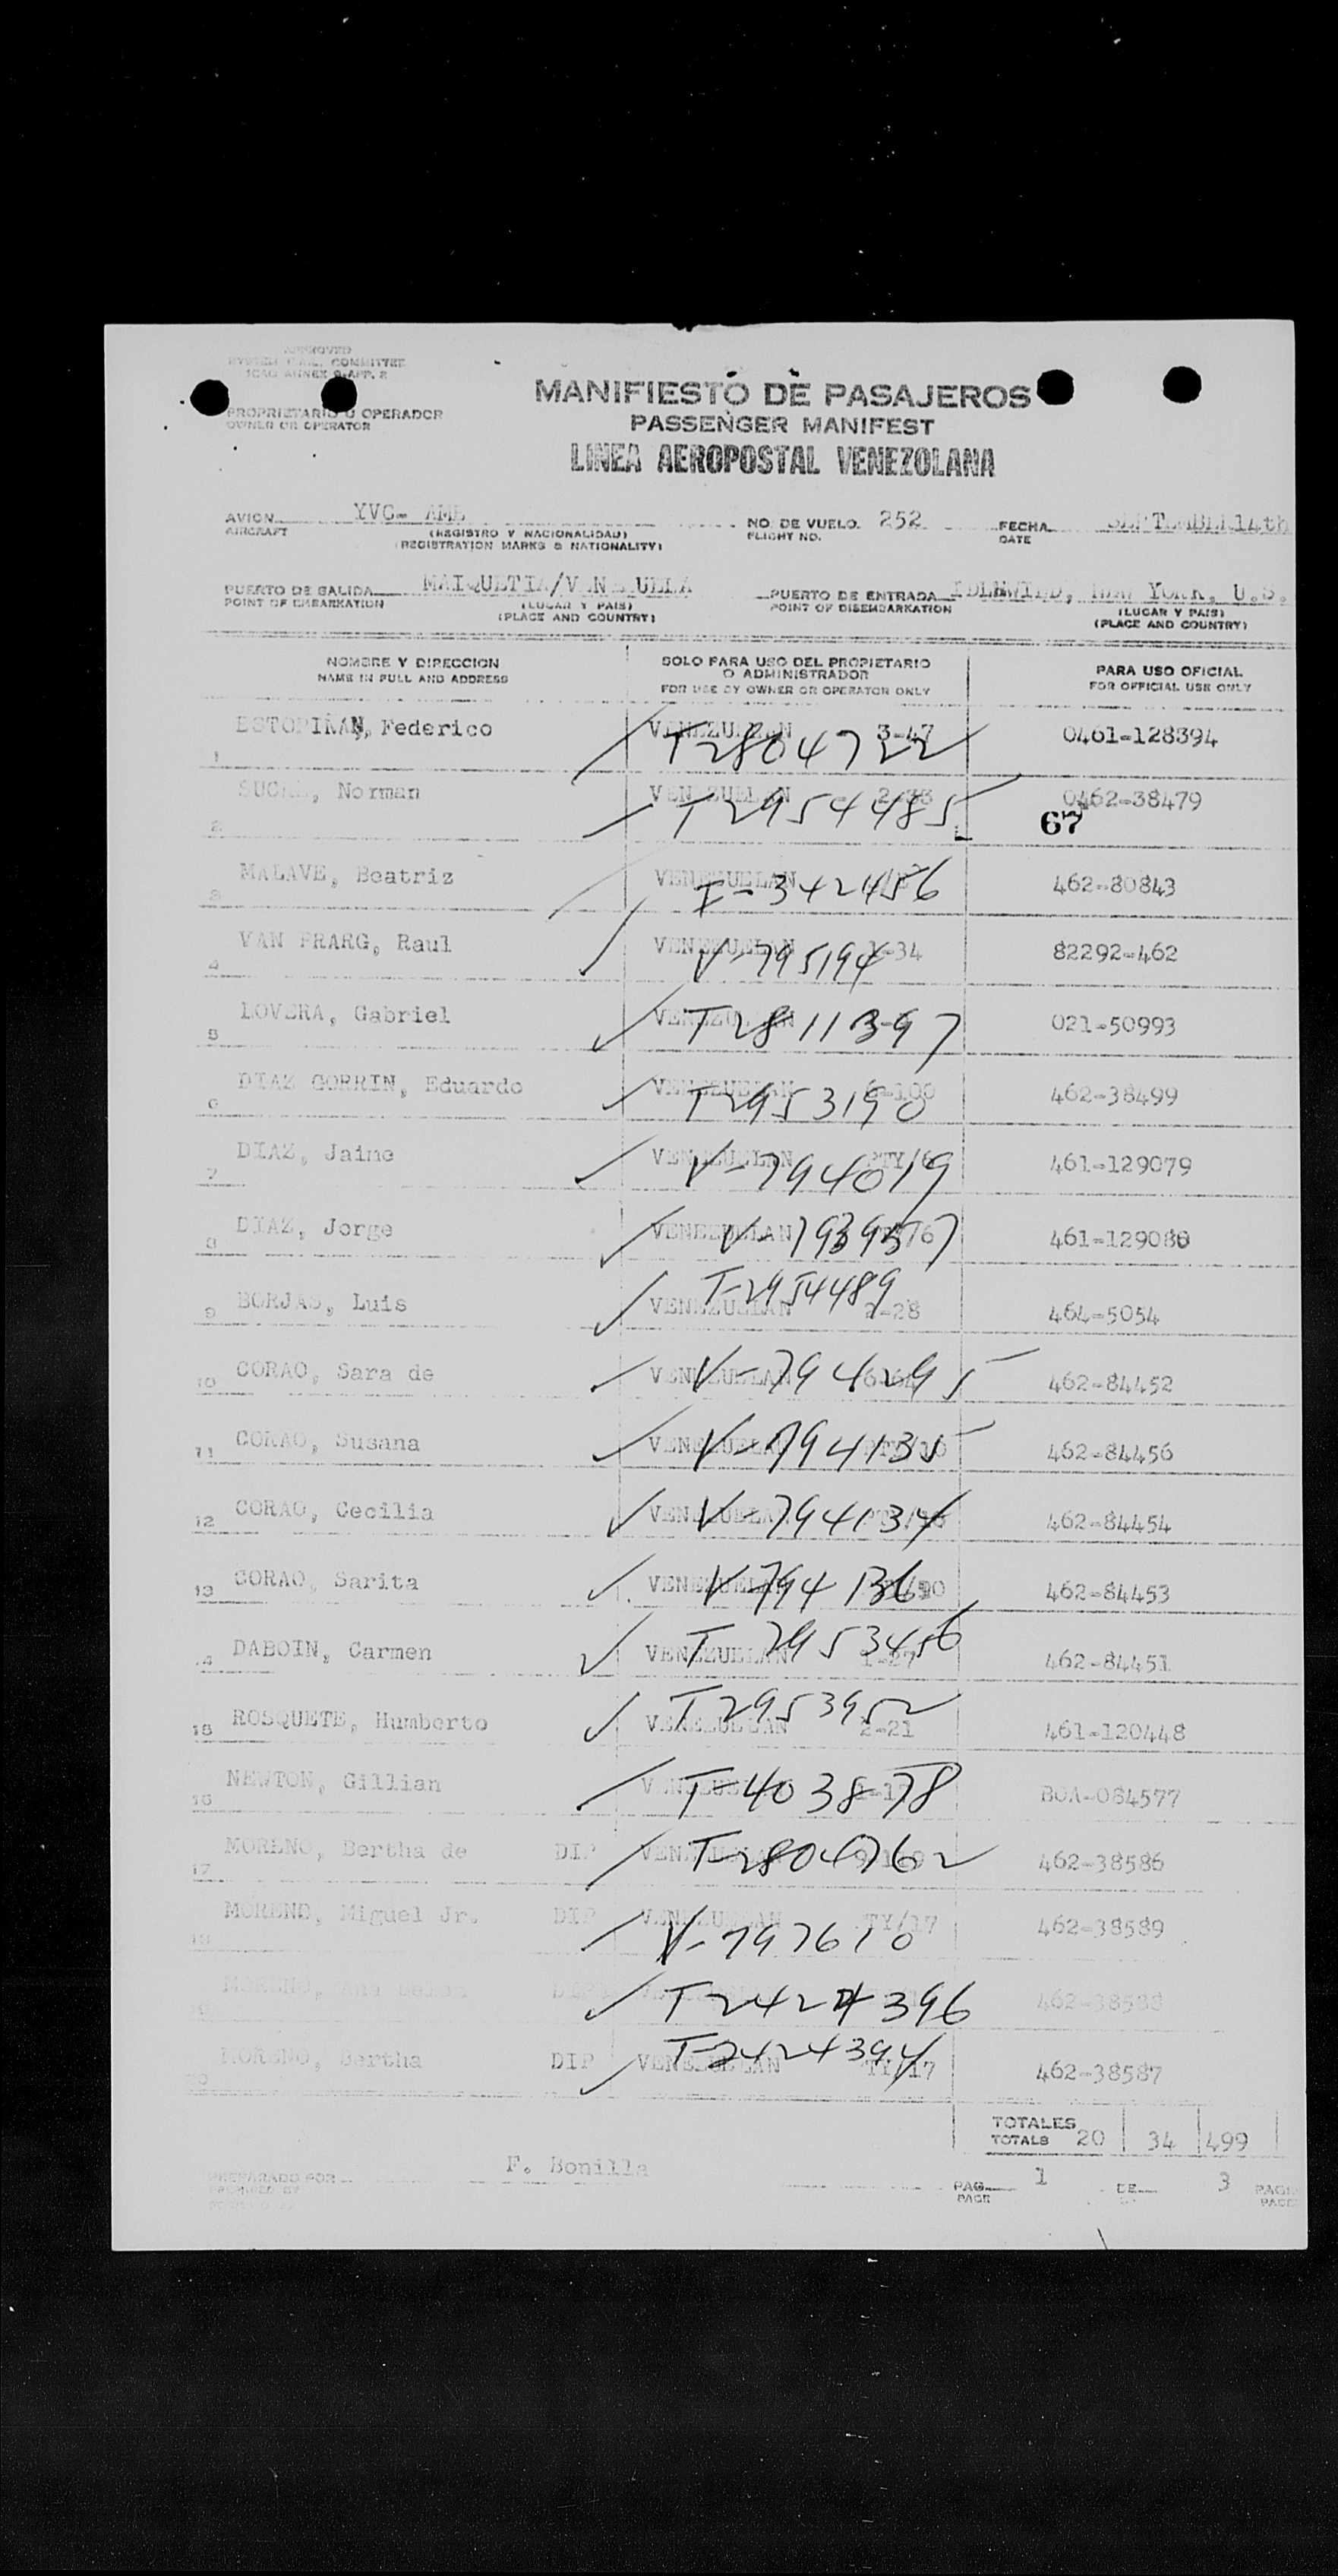 APPROVED
SYSTEM FAL. COMMITTEE
ICAO ANNEX 9-APP. 2
PROPRIETARIO U OPERADOR
OWNER OR OPERATOR
MANIFIESTO DE PASAJEROS
PASSENGER MANIFEST
LINEA AEROPOSTAL VENEZOLANA
AVION YVC- AME NO. DE VUELO. 252 FECHA SEPTEMBER 14th
AIRCRAFT (REGISTRO Y NACIONALIDAD) FLIGHT NO. DATE
(REGISTRATION MARKS & NATIONALITY)
PUERTO DE SALIDA MAIQUETIA/VENEZUELA PUERTO DE ENTRADA IDLEWILD, NEW YORK, U.S.
POINT OF EMBARKATION (LUGAR Y PAIS) POINT OF DISEMBARKATION (LUGAR Y PAIS)
(PLACE AND COUNTRY) (PLACE AND COUNTRY)
NOMBRE Y DIRECCION SOLO PARA USO DEL PROPIETARIO PARA USO OFICIAL
NAME IN FULL AND ADDRESS O ADMINISTRADOR FOR OFFICIAL USE ONLY
FOR USE BY OWNER OR OPERATOR ONLY
1 ESTOPIÑAN, Federico VENEZUELAN 3-47 T2804722 0461-128394
2 SUCRE, Norman VENEZUELAN 2-33 T2954485 0462-38479
67
3 MALAVE, Beatriz VENEZUELAN I-342456 462-80843
4 VAN PRARG, Raul VENEZUELAN 1-34 V-795194 82292-462
5 LOVERA, Gabriel VENEZUELAN T2811397 021-50993
6 DIAZ GORRIN, Eduardo VENEZUELAN 6-100 T2953190 462-38499
7 DIAZ, Jaime VENEZUELAN PTY/6 V-794019 461-129079
8 DIAZ, Jorge VENEZUELAN V-793957 461-129080
9 BORJAS, Luis VENEZUELAN 2-28 T-2954489 464-5054
10 CORAO, Sara de VENEZUELAN 6-64 V-794295 462-84452
11 CORAO, Susana VENEZUELAN V-794135 462-84456
12 CORAO, Cecilia VENEZUELAN V-794134 462-84454
13 CORAO, Sarita VENEZUELAN V-794136 462-84453
14 DABOIN, Carmen VENEZUELAN 1-27 T2953456 462-84451
15 ROSQUETE, Humberto VENEZUELAN 2-21 T2953952 461-120448
16 NEWTON, Gillian VENEZUELAN T-403878 BOA-084577
17 MORENO, Bertha de DIP VENEZUELAN T-2804762 462-38586
18 MORENO, Miguel Jr. DIP VENEZUELAN TY/17 V-797610 462-38589
19 MORENO, Ana DIP VENEZUELAN T2424396 462-38588
20 MORENO, Bertha DIP VENEZUELAN TY/17 T-2424394 462-38587
TOTALES
TOTALS 20 34 499
PREPARADO POR F. Bonilla
PREPARED BY
PAG. 1 DE 3 PAG
PAGE PAGE